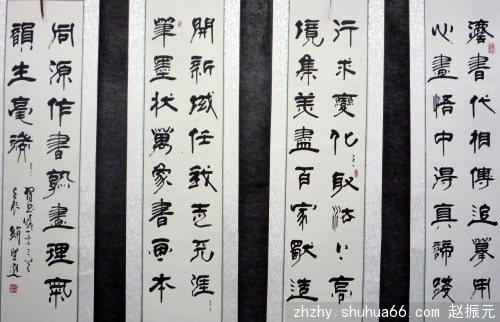 漢書代相傳追摹用
心畫悟中得真諦踐
行求變化取法〻高
境集美盡百家獻造
開新域任我志无涯
筆墨狀萬象書畫本
同源作書熟畫理氣
韻生毫端
zhzhy.shuhua66.com 赵振元